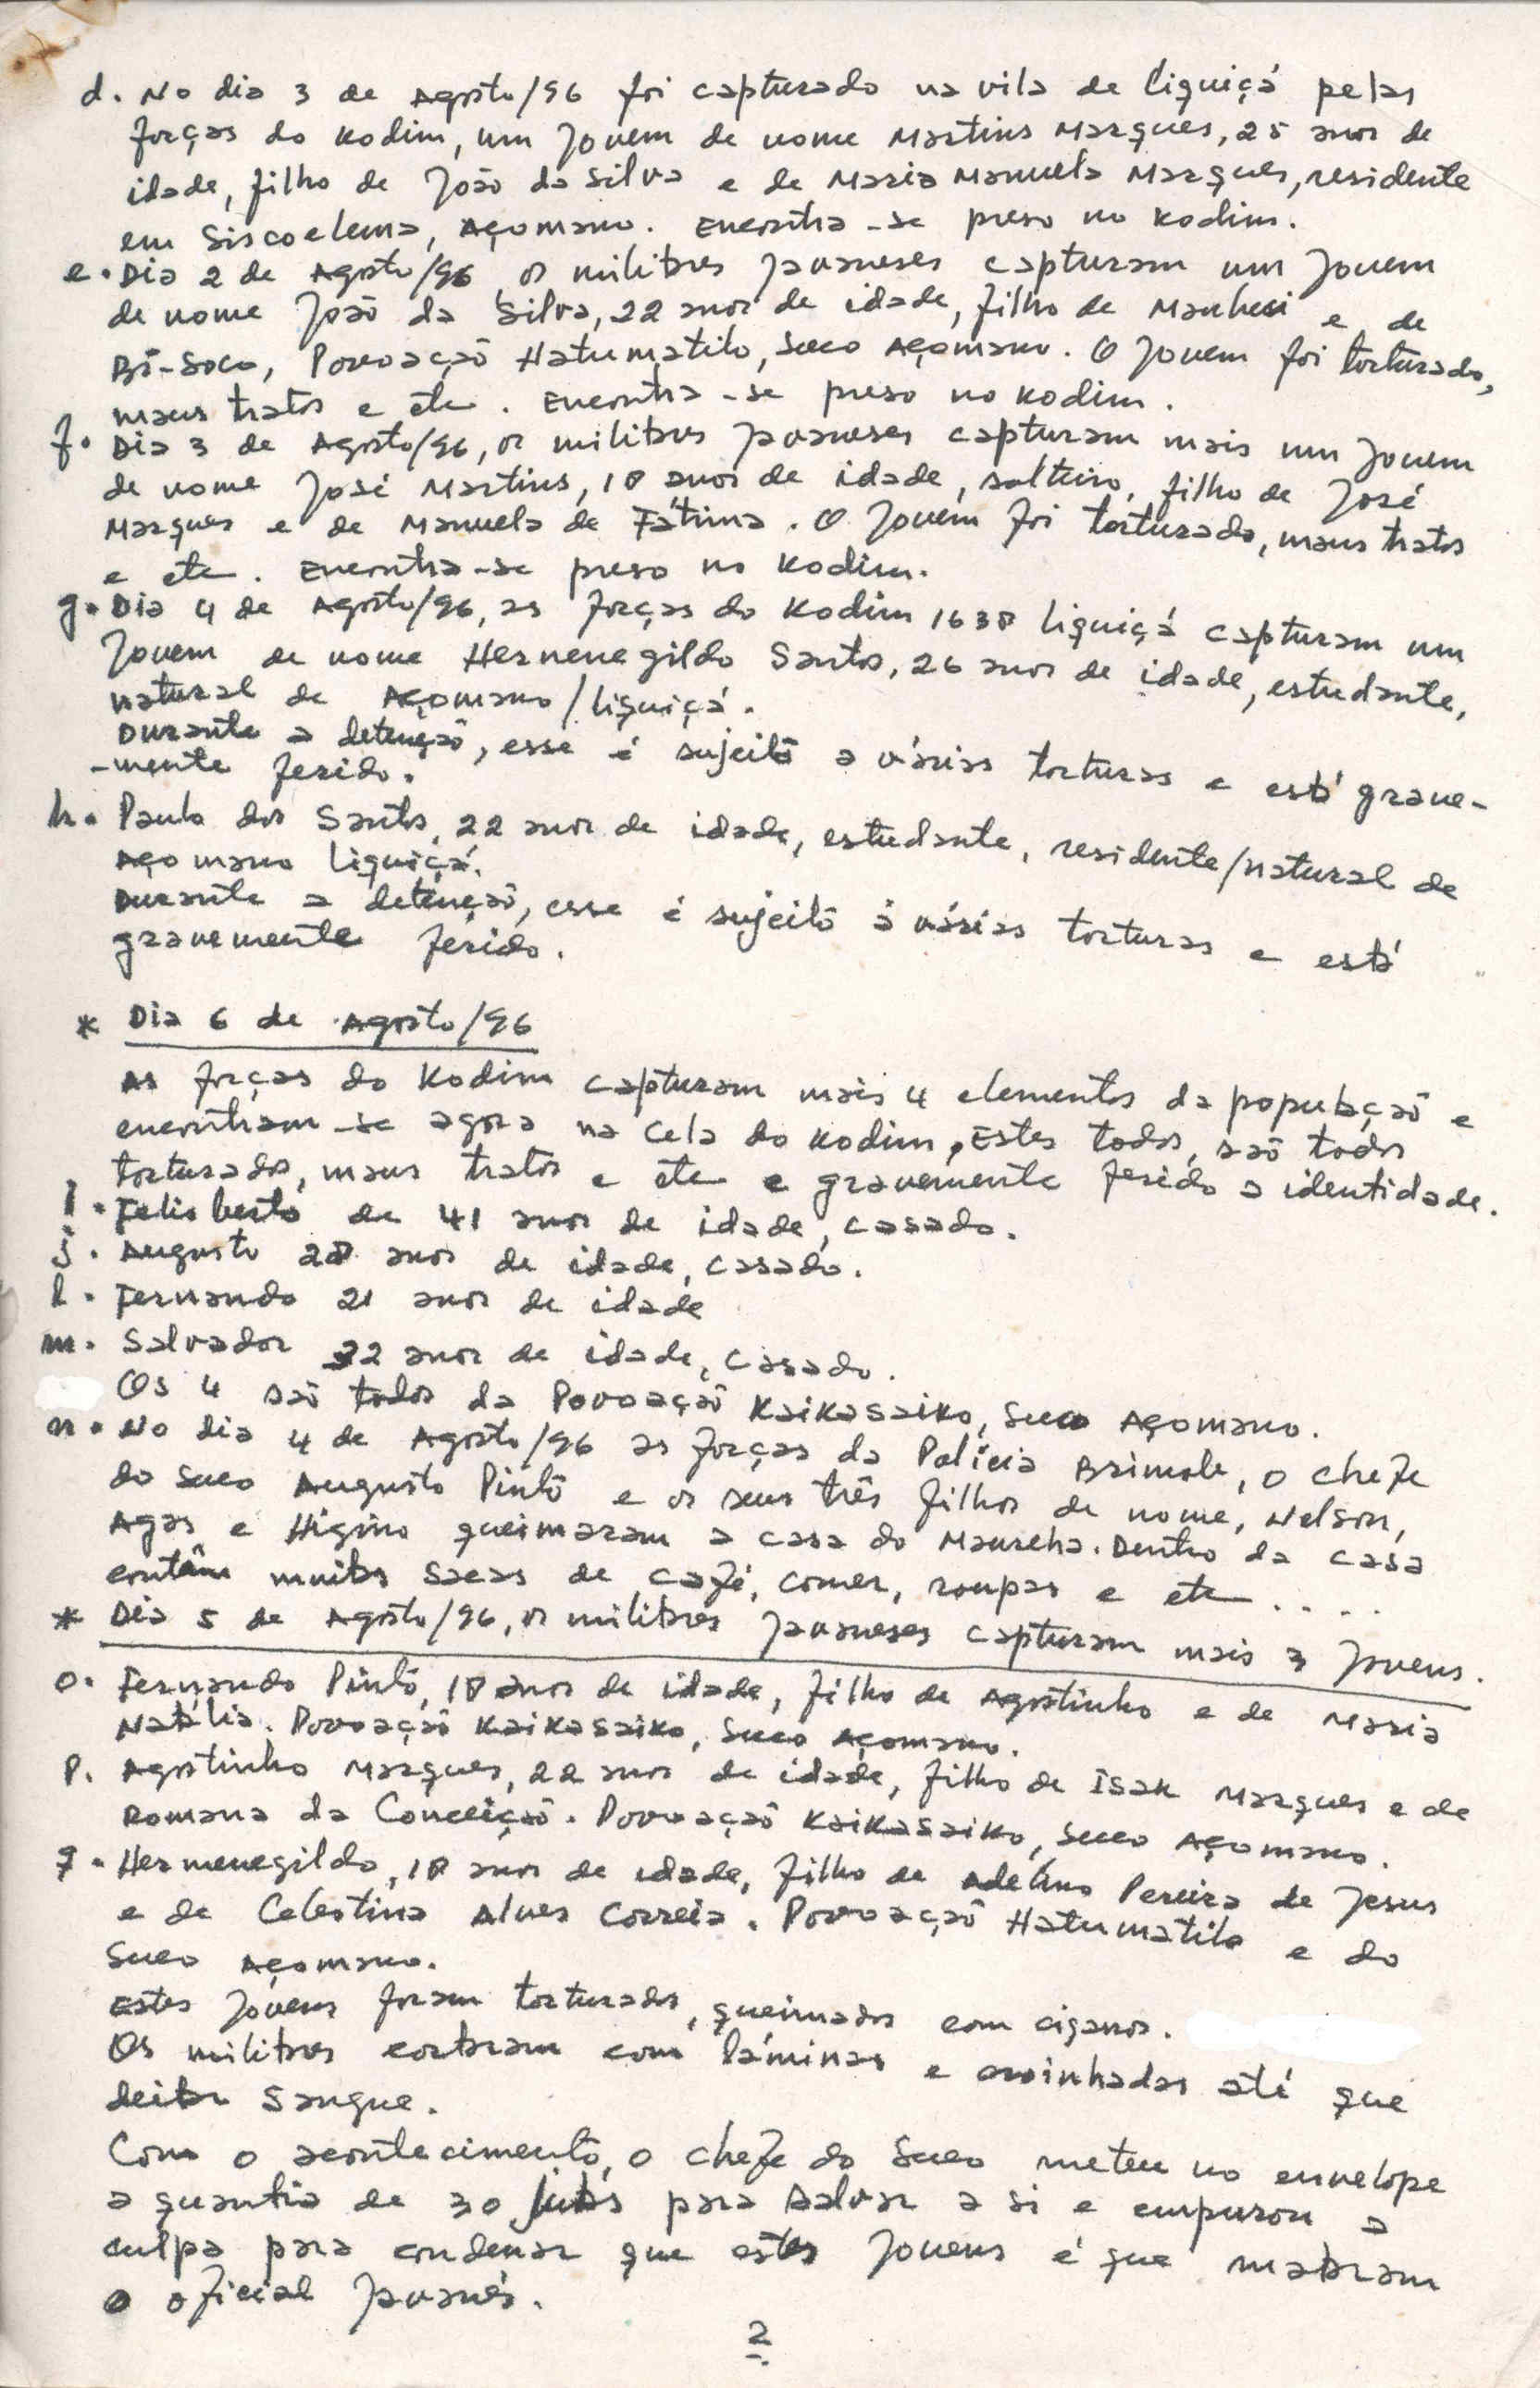 d. No dia 3 de Agosto/96 foi capturado na vila de Liquiçá pelas
forças do Kodim, um Jovem de nome Martins Marques, 25 anos de
idade, filho de João da Silva e de Maria Manuela Marques, residente
em Siscoelema, Açomano. Encontra-se preso no Kodim.
e. Dia 2 de Agosto/96 os militares Javaneses capturam um Jovem
de nome João da Silva, 22 anos de idade, filho de e de
Bí-Soco, Povoação Hatumatilo, Suco Açomano. O Jovem foi torturado,
maus tratos e etc. Encontra-se preso no Kodim.
f. Dia 3 de Agosto/96, os militares Javaneses capturam mais um Jovem
de nome José Martins, 18 anos de idade, solteiro, filho de José
Marques e de Manuela de Fátima. O Jovem foi torturado, maus tratos
e etc. Encontra-se preso no Kodim.
g. Dia 4 de Agosto/96, as forças do Kodim 1638 Liquiçá capturam um
Jovem de nome Hernenegildo Santos, 26 anos de idade, estudante,
natural de Açomano/Liquiçá.
Durante a detenção, esse é sujeito a várias torturas e está grave-
-mente ferido.
h. Paulo dos Santos, 22 anos de idade, estudante, residente/natural de
Açomano Liquiçá.
Durante a detenção, esse é sujeito à várias torturas e está
gravemente ferido.
* Dia 6 de Agosto/96
As forças do Kodim capturam mais 4 elementos da população e
encontram-se agora na cela do Kodim, Estes todos, são todos
torturados, maus tratos e etc e gravemente ferido a identidade.
I. Felisberto de 41 anos de idade, casado.
j. Augusto 28 anos de idade, casado.
l. Fernando 21 anos de idade
m. Salvador 32 anos de idade, casado.
Os 4 são todos da Povoação Kaikasaiko, Suco Açomano.
n. No dia 4 de Agosto/96 as forças da Polícia Brimob, o chefe
do Suco Augusto Pinto e os seus três filhos de nome, Nelson,
Agas e Higino queimaram a casa do Maureha. Dentro da casa
contêm muitas sacas de café, comer, roupas e etc....
* Dia 5 de Agosto/96, os militares Javaneses capturam mais 3 Jovens.
o. Fernando Pinto, 18 anos de idade, filho de Agostinho e de Maria
Natália. Povoação Kaikasaiko, Suco Açomano.
p. Agostinho Marques, 22 anos de idade, filho de Isak Marques e de
Romana da Conceição. Povoação Kaikasaiko, Suco Açomano.
q. Hermenegildo, 18 anos de idade, filho de Adelino Pereira de Jesus
e de Celestina Alves Correia. Povoação Hatumatilo e do
Suco Açomano.
Estes Jovens foram torturados, queimados com cigarros.
Os militares cortaram com láminas e até que
deitar sangue.
Com o acontecimento, o chefe do Suco meteu no envelope
a quantia de 30 Jutas para salvar a si e empurou a
culpa para condenar que estes Jovens é que mataram
o oficial Javanês.
2